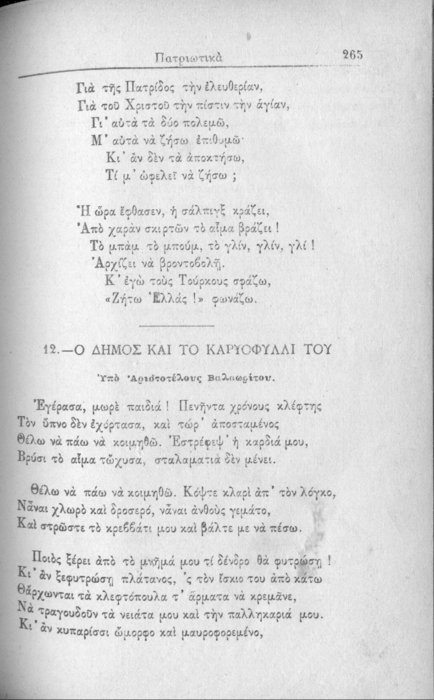 Πατριωτικὰ 265
Γιὰ τῆς Πατρίδος τὴν ἐλευθερίαν,
Γιὰ τοῦ Χριστοῦ τὴν πίστιν τὴν ἁγίαν,
Γι' αὐτὰ τὰ δύο πολεμῶ,
Μ' αὐτὰ νὰ ζήσω ἐπιθυμῶ·
Κι' ἂν δὲν τὰ ἀποκτήσω,
Τί μ' ὠφελεῖ νὰ ζήσω ;
Ἡ ὥρα ἔφθασεν, ἡ σάλπιγξ κράζει,
Ἀπὸ χαρὰν σκιρτῶν τὸ αἷμα βράζει !
Τὸ μπὰμ τὸ μπούμ, τὸ γλίν, γλίν, γλί !
Ἀρχίζει νὰ βροντοβολῇ.
Κ' ἐγὼ τοὺς Τούρκους σφάζω,
«Ζήτω Ἑλλάς !» φωνάζω.
12.—Ο ΔΗΜΟΣ ΚΑΙ ΤΟ ΚΑΡΥΟΦΥΛΛΙ ΤΟΥ
Ὑπὸ Ἀριστοτέλους Βαλαωρίτου.
Ἐγέρασα, μωρὲ παιδιά ! Πενῆντα χρόνους κλέφτης
Τὸν ὕπνο δὲν ἐχόρτασα, καὶ τώρ' ἀποσταμένος
Θέλω νὰ πάω νὰ κοιμηθῶ. Ἐστρέφεψ' ἡ καρδιά μου,
Βρύσι τὸ αἷμα τὤχυσα, σταλαματιὰ δὲν μένει.
Θέλω νὰ πάω νὰ κοιμηθῶ. Κόψτε κλαρὶ ἀπ' τὸν λόγκο,
Νἆναι χλωρὸ καὶ δροσερό, νἆναι ἀνθοὺς γεμάτο,
Καὶ στρῶστε τὸ κρεββάτι μου καὶ βάλτε με νὰ πέσω.
Ποιὸς ξέρει ἀπὸ τὸ μνῆμά μου τί δένδρο θὰ φυτρώσῃ !
Κι' ἂν ξεφυτρώσῃ πλάτανος, 'ς τὸν ἴσκιο του ἀπὸ κάτω
Θἄρχωνται τὰ κλεφτόπουλα τ' ἄρματα νὰ κρεμᾶνε,
Νὰ τραγουδοῦν τὰ νειάτα μου καὶ τὴν παλληκαριά μου.
Κι' ἂν κυπαρίσσι ὤμορφο καὶ μαυροφορεμένο,